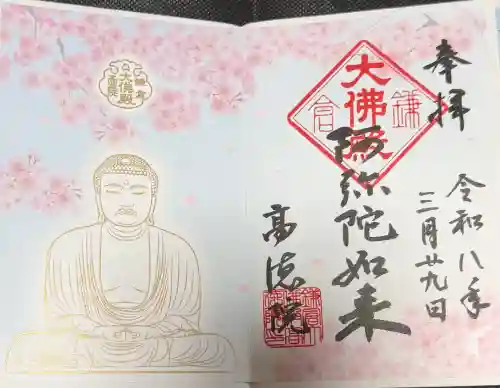 奉拝
令和八年
三月廿九日
大佛殿
鎌倉
阿弥陀如来
高徳院
大佛殿